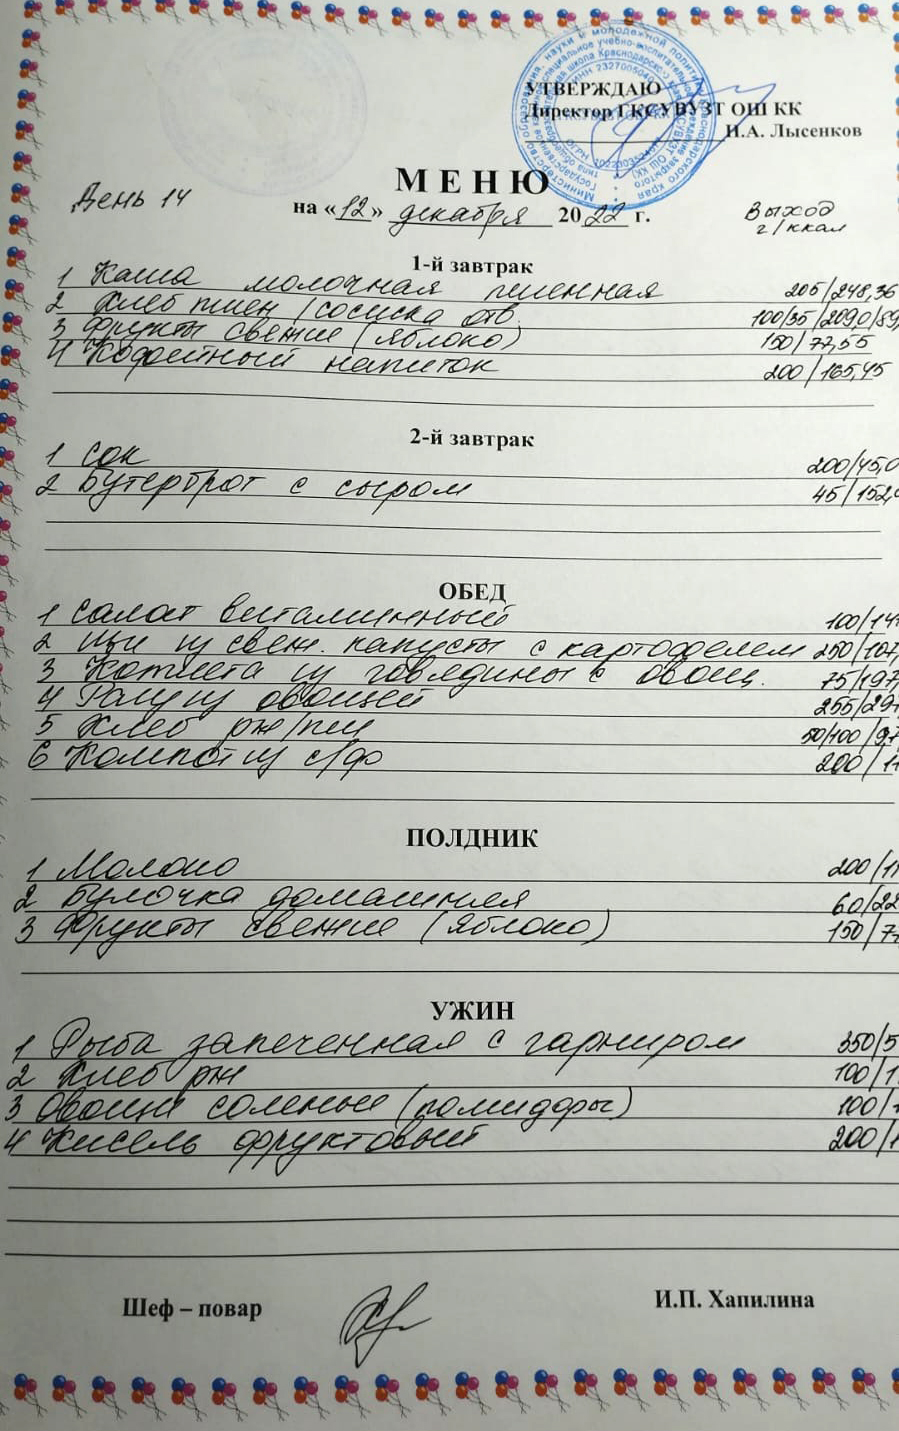 УТВЕРЖДАЮ
Директор ГКСУВУЗТ ОШ КК
Н.А. Лысенков
МЕНЮ
День 14
на «12» декабря 2022 г.
Выход
г/ккал
1-й завтрак
1 Каша молочная пшенная 205/248,36
2 Хлеб пшен/сосиска отв. 100/35/209,0/89
3 Фрукты свежие (яблоко) 150/77,55
4 Кофейный напиток 200/165,45
2-й завтрак
1 Сок 200/45,0
2 Бутерброт с сыром 45/152,
ОБЕД
1 Салат витаминный 100/14
2 Щи из свеж. капусты с картофелем 250/107,
3 Котлета из говядины с овощ. 75/197
4 Рагу из овощей 255/29
5 Хлеб рж/пш 50/100/97
6 Компот из с/ф 200/11
ПОЛДНИК
1 Молоко 200/11
2 Булочка домашняя 60/22
3 Фрукты свежие (яблоко) 150/77
УЖИН
1 Рыба запеченная с гарниром 350/5
2 Хлеб рж 100/1
3 Овощи соленые (помидоры) 100/
4 Кисель фруктовый 200/1
Шеф – повар
И.П. Хапилина